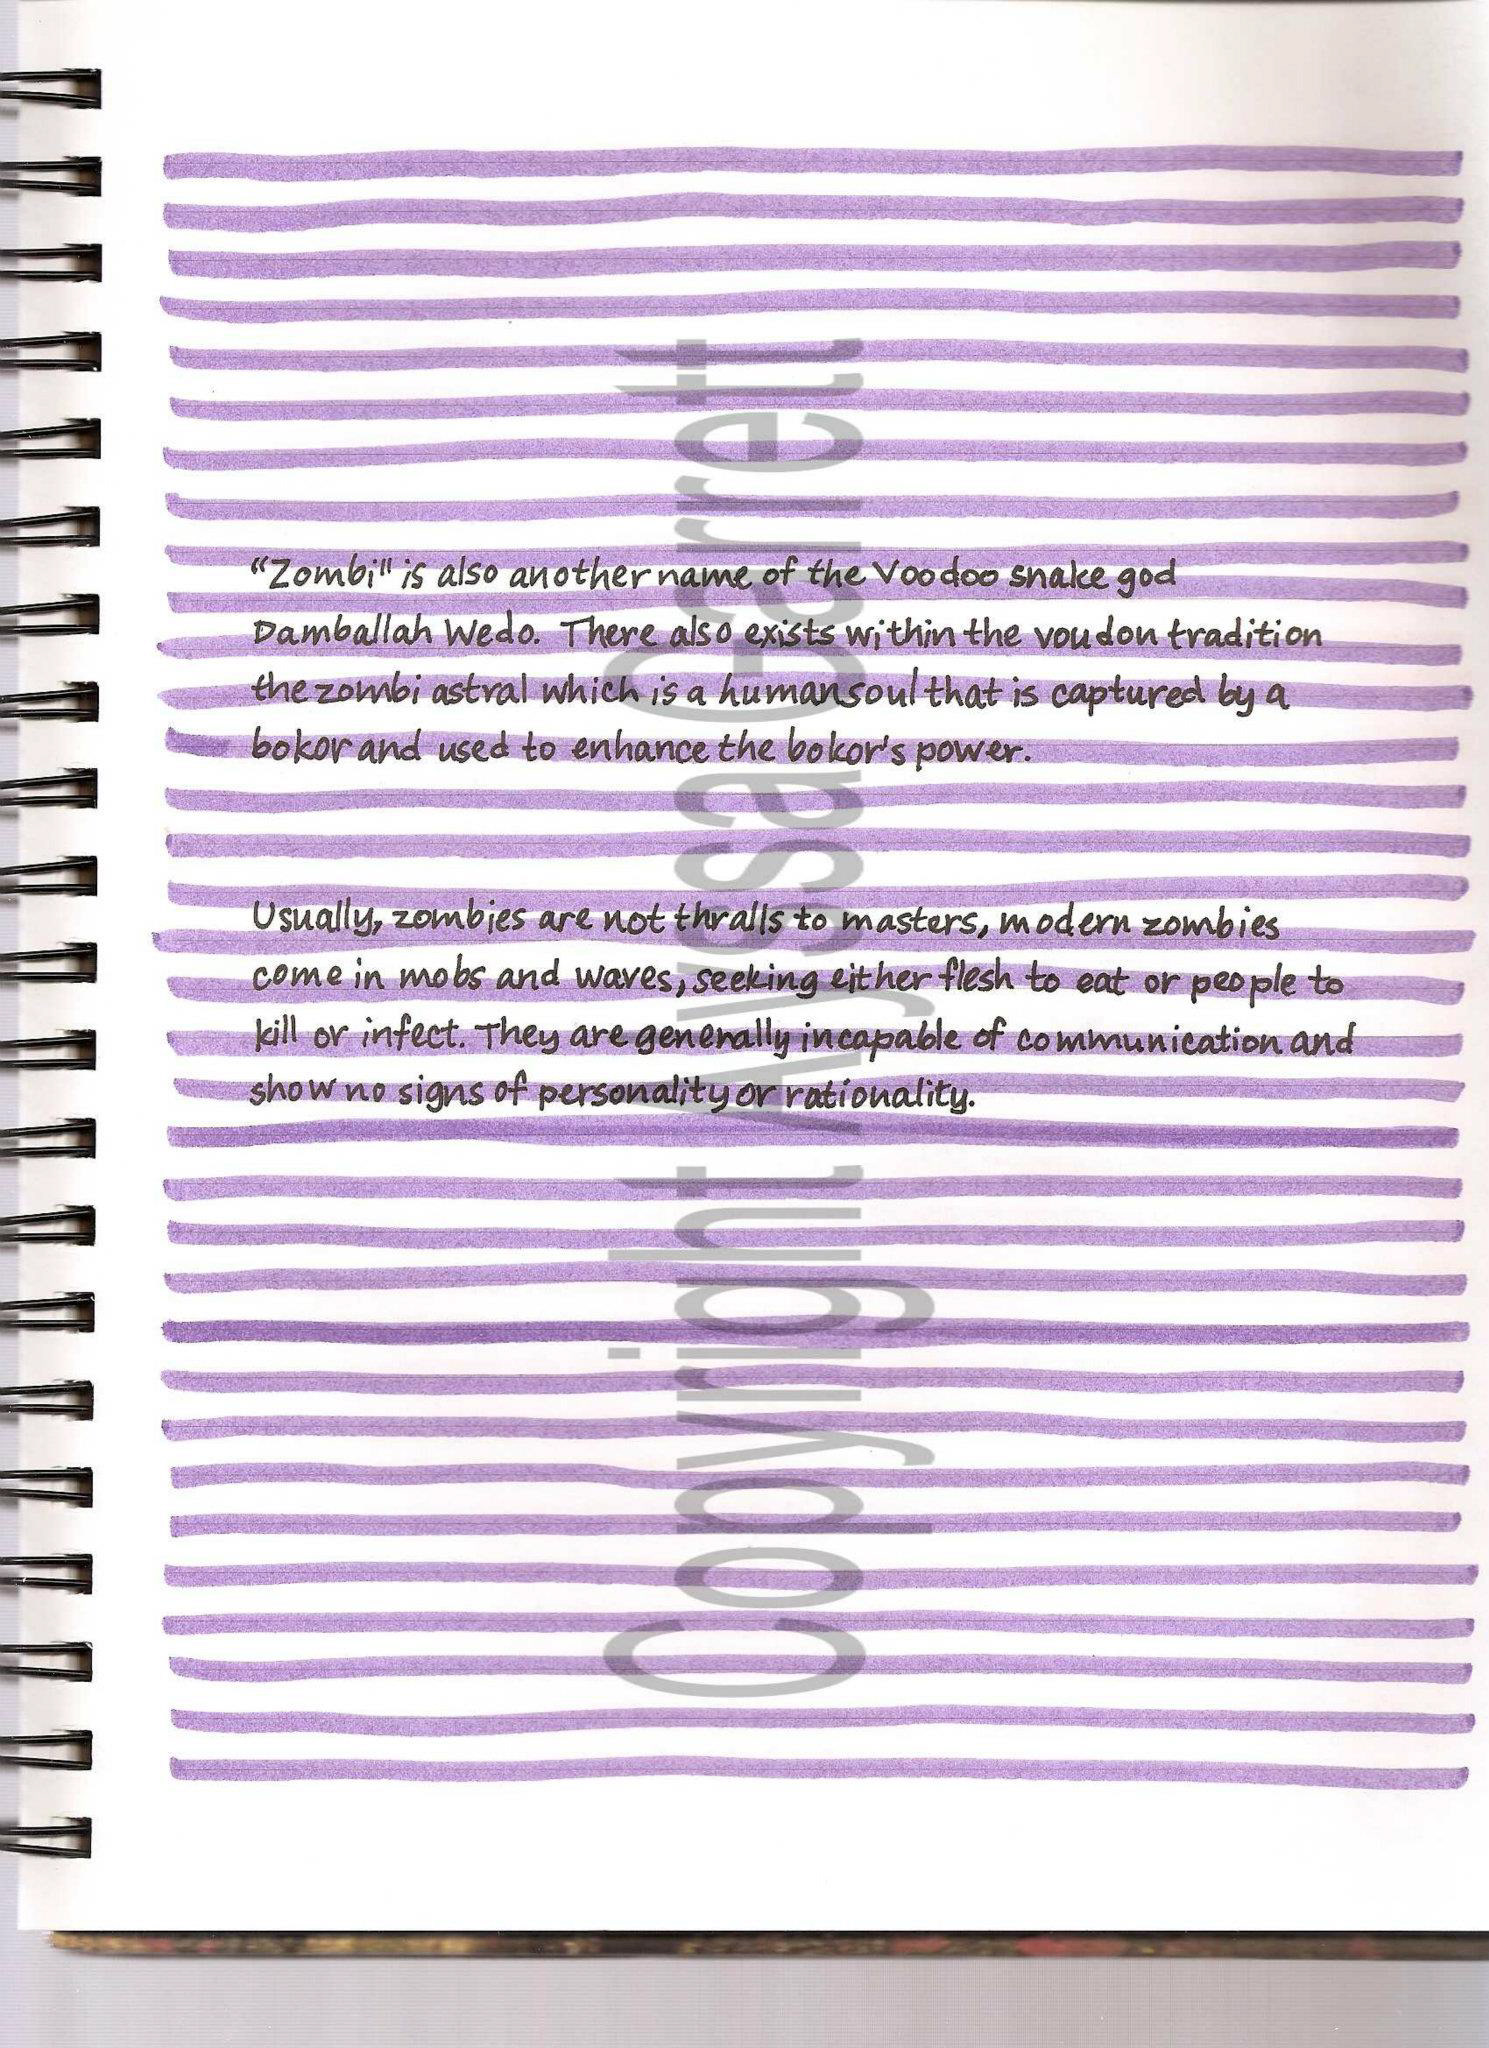 “Zombi" is also another name of the Voodoo snake god
Damballah Wedo. There also exists within the voudon tradition
the zombi astral which is a human soul that is captured by a
bokor and used to enhance the bokor's power.
Usually, zombies are not thralls to masters, modern zombies
come in mobs and waves, seeking either flesh to eat or people to
kill or infect. They are generally incapable of communication and
show no signs of personality or rationality.
Copyright Alyssa Garret